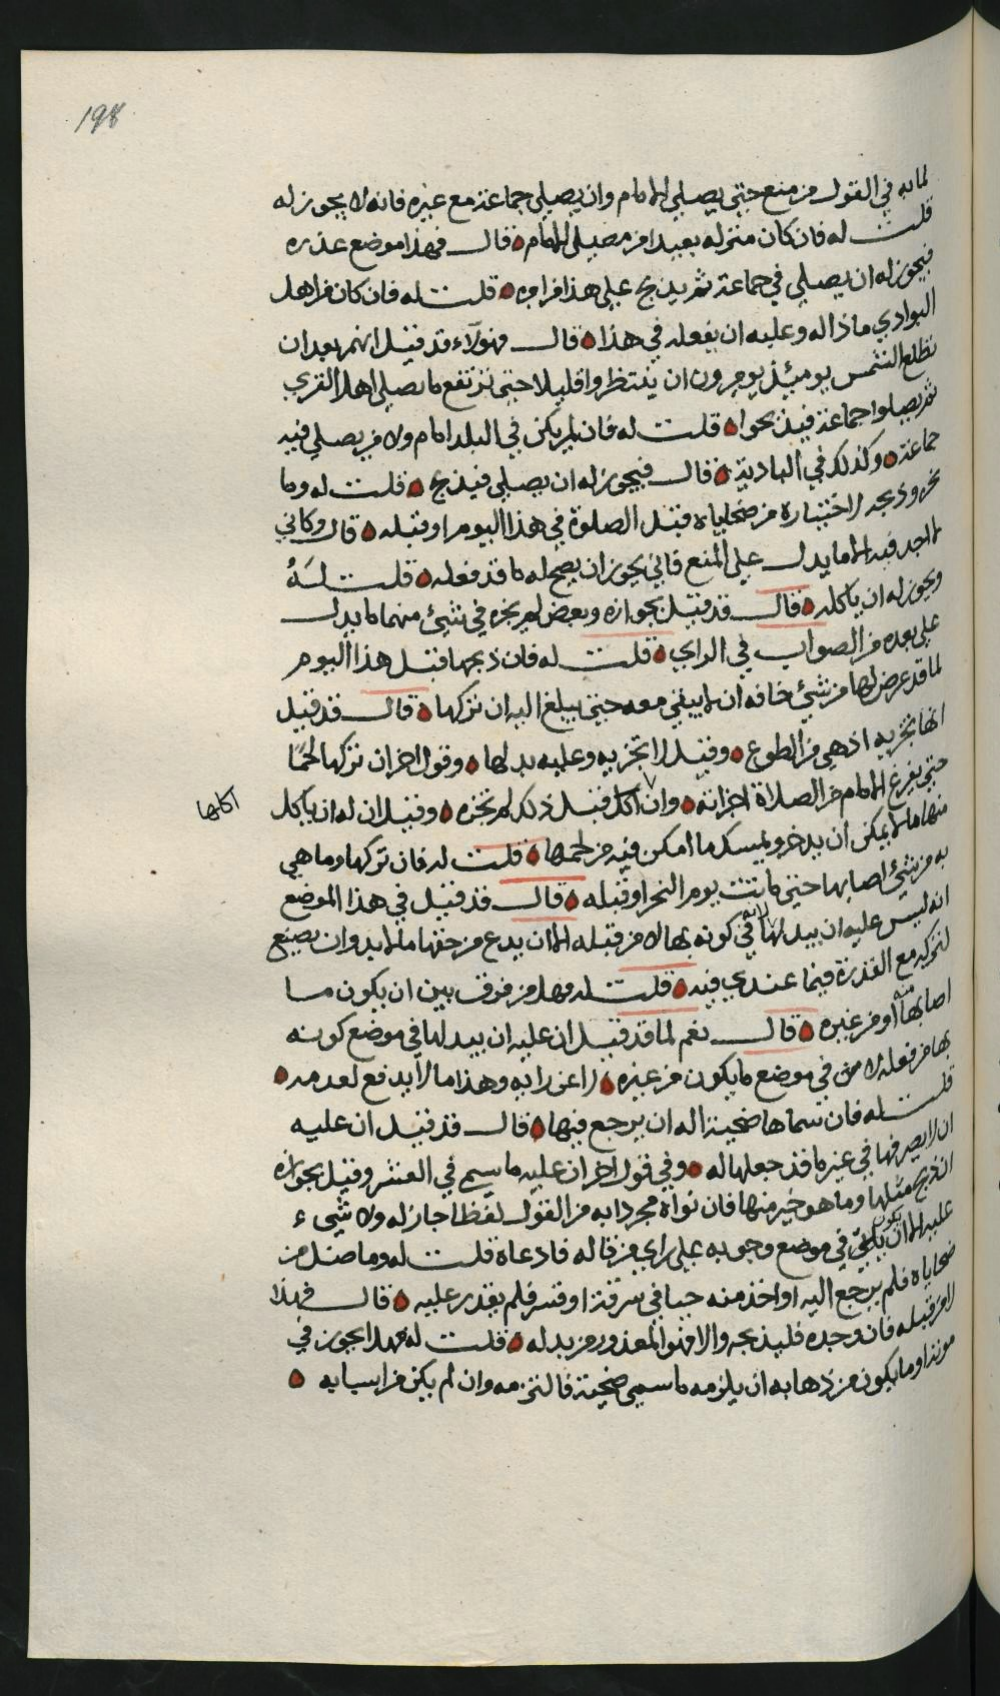 198
لما به في القول من منع حتى يصلي الامام وان يصلي جماعة مع غيره فانه لا يجوز له
قلت له فان كان منزله بعيدا من مصلى الامام قال فهذا موضع عذره
فيجوز له ان يصلي في جماعة ثم يذبح على هذا قلت له فان كان من اهل
البوادي ماذا له وعليه ان يفعله في هذا قال فهؤلاء قد قيل انهم بعد ان
تطلع الشمس يومئذ يومرون ان ينتظروا قليلا حتى ترتفع ما يصلي اهل القرى
ثم يصلوا جماعة فيذبحوا قلت له فان لم يكن في البلد امام ولا من يصلي فيه
جماعة وكذلك في البادية قال فيجوز له ان يصلي فيذبح قلت له وما
نحره وذبحه لاختياره من ضحاياه قبل الصلوة في هذا اليوم او قبله قال وكاني
لا اجد فيه الا ما يدل على المنع فانى يجوز ان يصح له ما قد فعله قلت له
ويجوز له ان ياكله قال قد قيل بجوازه وبعض لم يجزه في شيئ منهما ما يدل
على بعده من الصواب في الراي قلت له فان ذبحها قبل هذا اليوم
لما قد عرض لها من شيئ خافه ان لا يبقي معه حتى يبلغ اليه ان تركها قال قد قيل
انها تجزيه اذ هي من الطوع وقيل لا تجزيه وعليه بدلها وقول اخر ان تركها لحما
حتى يفرغ الامام من الصلاة اجزاته وان اكل قبل ذلك لم تجزه وقيل ان له ان ياكل
اكلها
منها ما لا يمكن ان يدخر ويمسك ما امكن فيه من لحمها قلت له فان تركها وما هي
به من شيئ اصابها حتى ماتت يوم النحر او قبله قال قد قيل في هذا الموضع
انه ليس عليه ان يبدلها لانه في كونه بها لا من قبله الا ان يدع من حقها ما لا بد وان يصنع
لتركه مع القدرة فيما عندي فيه قلت له وهل من فرق بين ان يكون ما
اصابها منه او من غيره قال نعم لما قد قيل ان عليه ان يبدلها في موضع كونه
بها من فعله لا في موضع ما يكون من غيره لا عن رايه وهذا ما لا يدفع لعدمه
قلت له فان سماها ضحية اله ان يرجع فيها قال قد قيل ان عليه
ان لا يصرفها في غير ما قد جعلها له وفي قول اخر ان عليه ما سمي في العشر وقيل بجوازه
ان ذبح مثلها وما هو خير منها فان نواه مجردا به من القول لفظا جاز له ولا شيء
عليه الا ان يكون في موضع وجوبه على راي من قاله فادعاه قلت له وما ضل من
ضحاياه فلم يرجع اليه او اخذ منه حبا في سرقة او قسر فلم يقدر عليه قال فهذا
لا من قبله فان وجده فليذبحه والا فهو المعذور من بدله قلت له فهل يجوز في
موته او ما يكون من ذهابه ان يلزمه ما سمي ضحية فالتزمه وان لم يكن من اسبابه